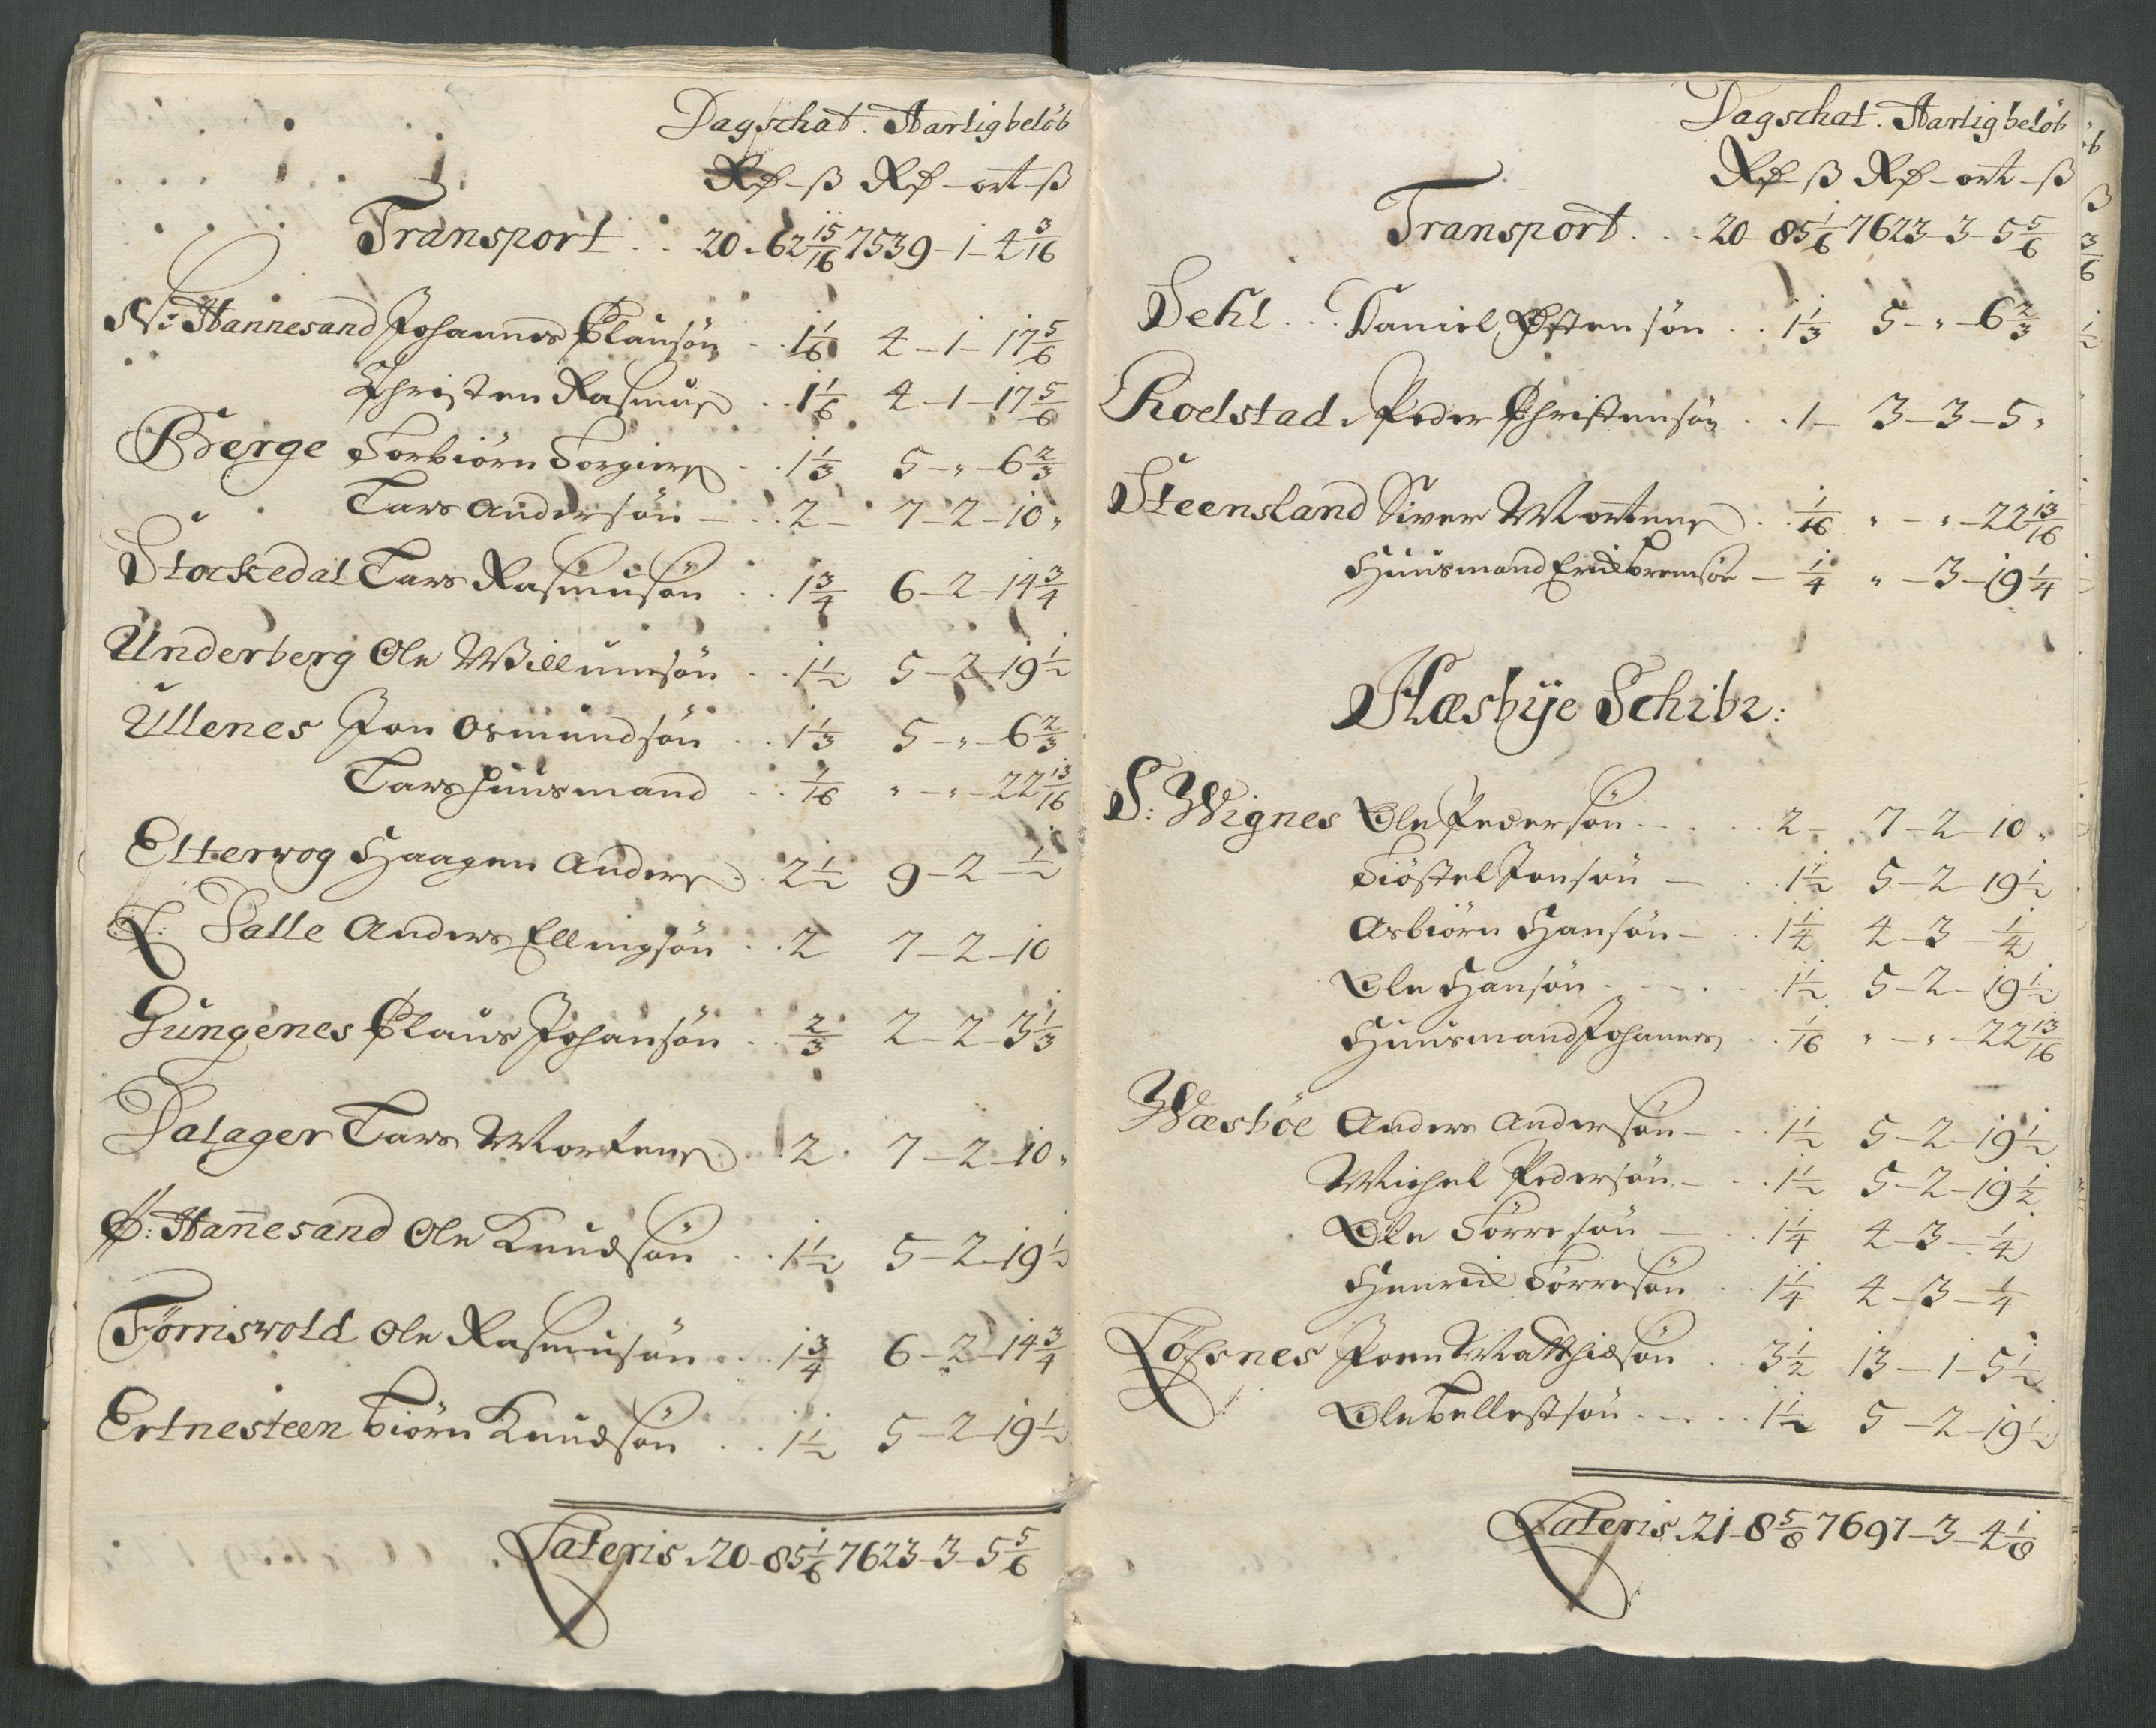 Dagschat. Aarlig belöb
Rd - ß Rd - ort - ß
Transport . . 20 - 62 15/16 7539 - 1 - 4 3/16
N: Hannesand Johannes Clausön . . 1 1/6 4 - 1 - 17 5/6
Christen Rasmus . . 1 1/6 4 - 1 - 17 5/6
Berge Torbiörn Torgiers . . 1 1/3 5 - " - 6 2/3
Lars Andersön - . . 2 - 7 - 2 - 10 "
Stockedal Lars Rasmusön . . 1 3/4 6 - 2 - 14 3/4
Underberg Ole Willumsön . . 1 1/2 5 - 2 - 19 1/2
Ullenes Jon Osmundsön . . 1 1/3 5 - " - 6 2/3
Lars Huusmand . . 1/16 " - " - 22 13/16
Etterwog Haagen Anders . . 2 1/2 9 - 2 - 1/2
L: Salle Anders Ellingsön . . 2 7 - 2 - 10
Gungenes Claus Johansön . . 2/3 2 - 2 - 3 1/3
Dalager Lars Mortens . . 2 . 7 - 2 - 10 "
Ø: Hannesand Ole Knudsön . . 1 1/2 5 - 2 - 19 1/2
Förriswold Ole Rasmusön . . 1 3/4 6 - 2 - 14 3/4
Ertnesteen Biörn Knudsön . . 1 1/2 5 - 2 - 19 1/2
Lateris . 20 - 85 1/6 7623 - 3 - 5 5/6
Dagschat. Aarlig belöb
Rd - ß Rd - ort - ß
Transport . . . 20 - 85 1/6 7623 - 3 - 5 5/6
Sehl . . Daniel Østensön . . 1 1/3 5 - " - 6 2/3
Roelstad . Peder Christensön . . 1 - 3 - 3 - 5 "
Steensland Siver Mortens . . 1/16 " - " - 22 13/16
Huusmand Erich - 1/4 " - 3 - 19 1/4
Næsbÿe Schibr:
S: Wignes Ole Pedersön . . . . 2 - 7 - 2 - 10 "
Kiöstel Jonsön - . . 1 1/2 5 - 2 - 19 1/2
Asbiörn Hansön - . . 1 1/4 4 - 3 - 1/4
Ole Hansön . - . . 1 1/2 5 - 2 - 19 1/2
Huusmand Johannes . . 1/16 " - " - 22 13/16
Wæsböe Anders Andersön - . . 1 1/2 5 - 2 - 19 1/2
Michel Pedersön - . . 1 1/2 5 - 2 - 19 1/2
Ole Törresön - . . 1 1/4 4 - 3 - 1/4
Henrich Törresön . . 1 1/4 4 - 3 - 1/4
Löfsnes Joen Matthiæsön . . 3 1/2 13 - 1 - 5 1/2
Ole Tellestsön . . . 1 1/2 5 - 2 - 19 1/2
Lateris . 21 - 8 5/8 7697 - 3 - 4 1/8